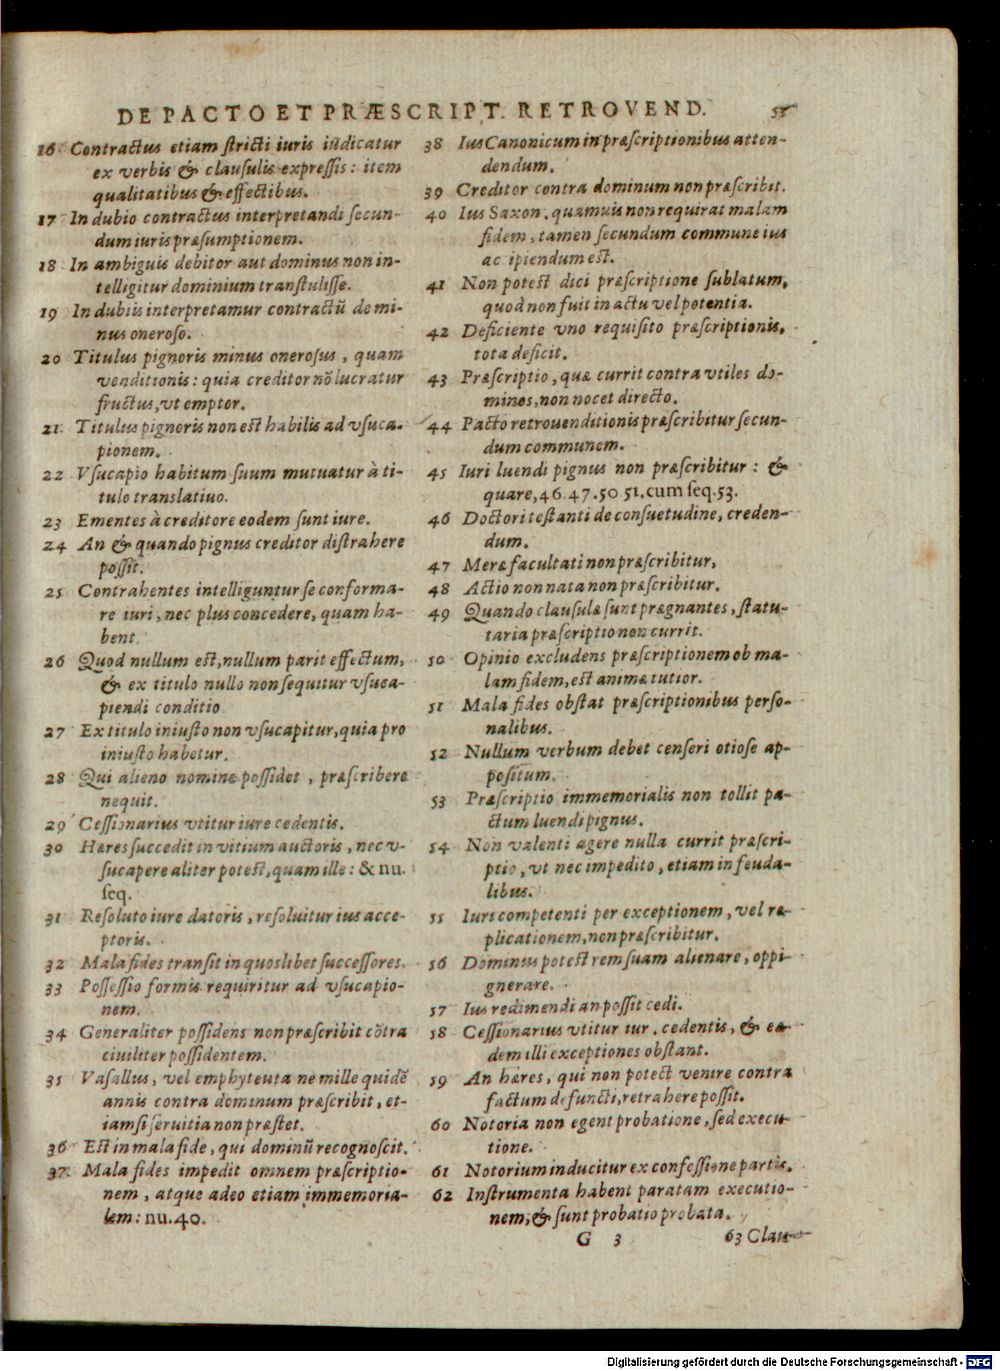 DE PACTO ET PRÆSCRIPT. RETROVEND. 53
16 Contractus etiam stricti iuris iudicatur
ex verbis & clausulis expressis: item
qualitatibus & effectibus.
17 In dubio contractus interpretandi secun-
dum iuris præsumptionem.
18 In ambiguis debitor aut dominus non in-
telligitur dominium transtulisse.
19 In dubiis interpretamur contractũ de mi-
nus oneroso.
20 Titulus pignoris minus onerosus, quam
venditionis: quia creditor nõ lucratur
fructus, vt emptor.
21 Titulus pignoris non est habilis ad vsuca-
pionem.
22 Vsucapio habitum suum mutuatur à ti-
tulo translatiuo.
23 Ementes à creditore eodem sunt iure.
24 An & quando pignus creditor distrahere
possit.
25 Contrahentes intelliguntur se conforma-
re iuri, nec plus concedere, quam ha-
bent.
26 Quod nullum est, nullum parit effectum,
& ex titulo nullo non sequitur vsuca-
piendi conditio
27 Ex titulo iniusto non vsucapitur, quia pro
iniusto habetur.
28 Qui alieno nomine possidet, præscribere
nequit.
29 Cessionarius vtitur iure cedentis.
30 Hæres succedit in vitium auctoris, nec v-
sucapere aliter potest, quam ille: & nu.
seq.
31 Resoluto iure datoris, resoluitur ius acce-
ptoris.
32 Mala fides transit in quoslibet successores.
33 Possessio formis requiritur ad vsucapio-
nem.
34 Generaliter possidens non præscribit cõtra
ciuiliter possidentem.
35 Vasallus, vel emphyteuta ne mille quidẽ
annis contra dominum præscribit, et-
iamsi seruitia non præstet.
36 Est in mala fide, qui dominũ recognoscit.
37 Mala fides impedit omnem præscriptio-
nem, atque adeo etiam immemoria-
lem: nu. 40.
38 Ius Canonicum in præscriptionibus atten-
dendum.
39 Creditor contra dominum non præscribit.
40 Ius Saxon. quamuis non requirat malam
fidem, tamen secundum commune ius
ac ipiendum est.
41 Non potest dici præscriptione sublatum,
quod non fuit in actu vel potentia.
42 Deficiente vno requisito præscriptionis,
tota deficit.
43 Præscriptio, quæ currit contra vtiles do-
minos, non nocet directo.
44 Pacto retrouenditionis præscribitur secun-
dum communem.
45 Iuri luendi pignus non præscribitur: &
quare, 46 47. 50 51. cum seq. 53.
46 Doctori testanti de consuetudine, creden-
dum.
47 Meræ facultati non præscribitur,
48 Actio non nata non præscribitur.
49 Quando clausulæ sunt prægnantes, statu-
taria præscriptio non currit.
50 Opinio excludens præscriptionem ob ma-
lam fidem, est animæ tutior.
51 Mala fides obstat præscriptionibus perso-
nalibus.
52 Nullum verbum debet censeri otiose ap-
positum.
53 Præscriptio immemorialis non tollit pa-
ctum luendi pignus.
54 Non valenti agere nulla currit præscri-
ptio, vt nec impedito, etiam in feuda-
libus.
55 Iuri competenti per exceptionem, vel re-
plicationem, non præscribitur.
56 Dominus potest rem suam alienare, oppi-
gnerare.
57 Ius redimendi an possit cedi.
58 Cessionarius vtitur iur. cedentis, & eæ-
dem illi exceptiones obstant.
59 An hæres, qui non potest venire contra
factum defuncti, retrahere possit.
60 Notoria non egent probatione, sed execu-
tione.
61 Notorium inducitur ex confessione partis.
62 Instrumenta habent paratam executio-
nem, & sunt probatio probata.
G 3 63 Clau-
Digitalisierung gefördert durch die Deutsche Forschungsgemeinschaft - DFG